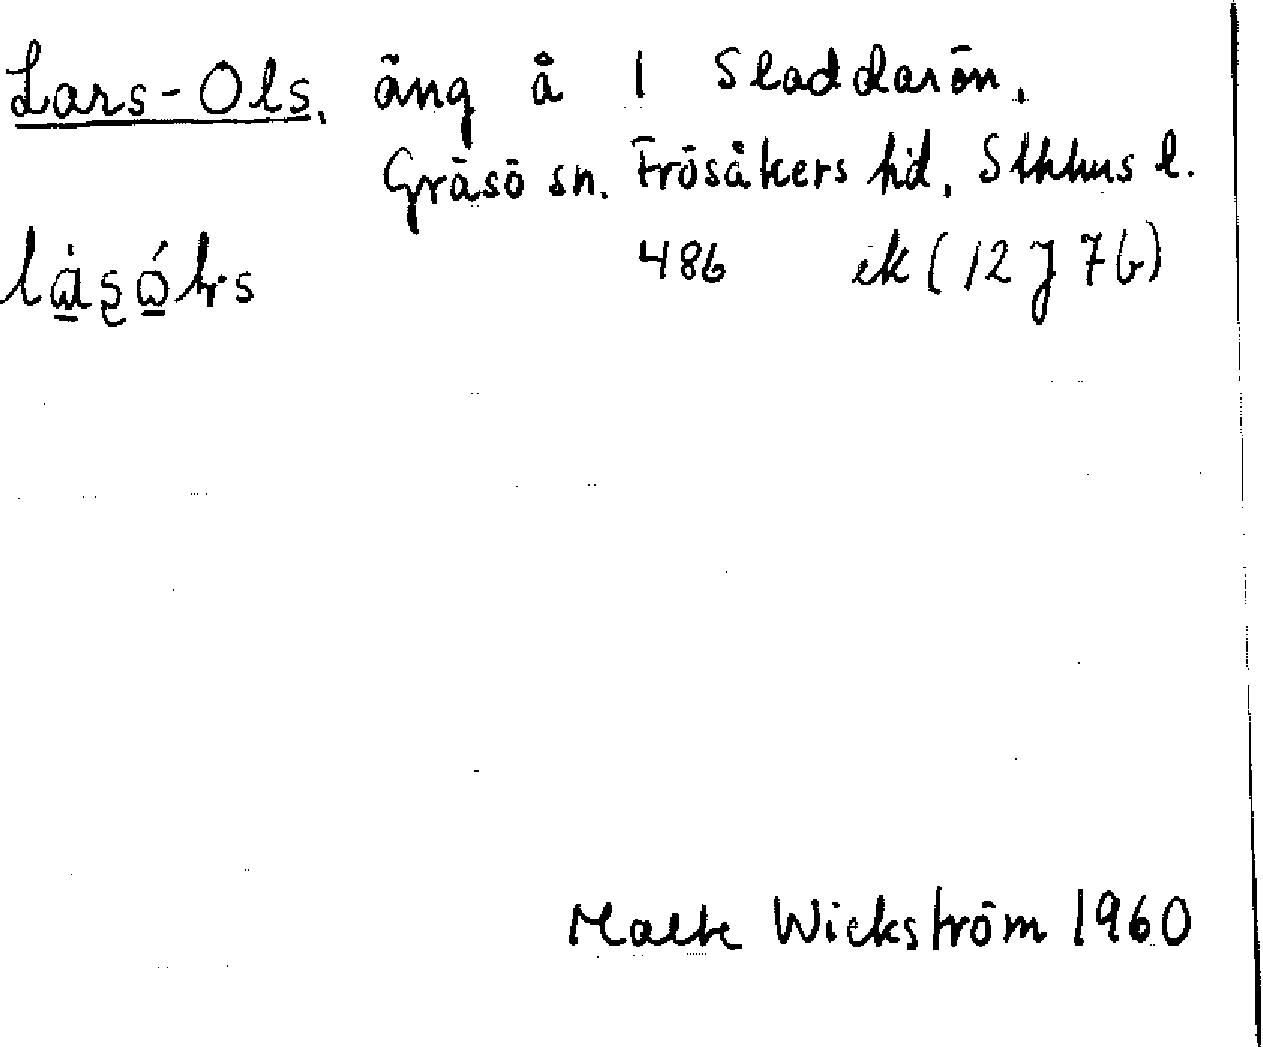 Lars-Ols, äng å 1 Sladdarön,
Gräsö sn. Frösåkers hd, Sthlms l.
486 ek (12 J 7 b)
Malte Wickström 1960